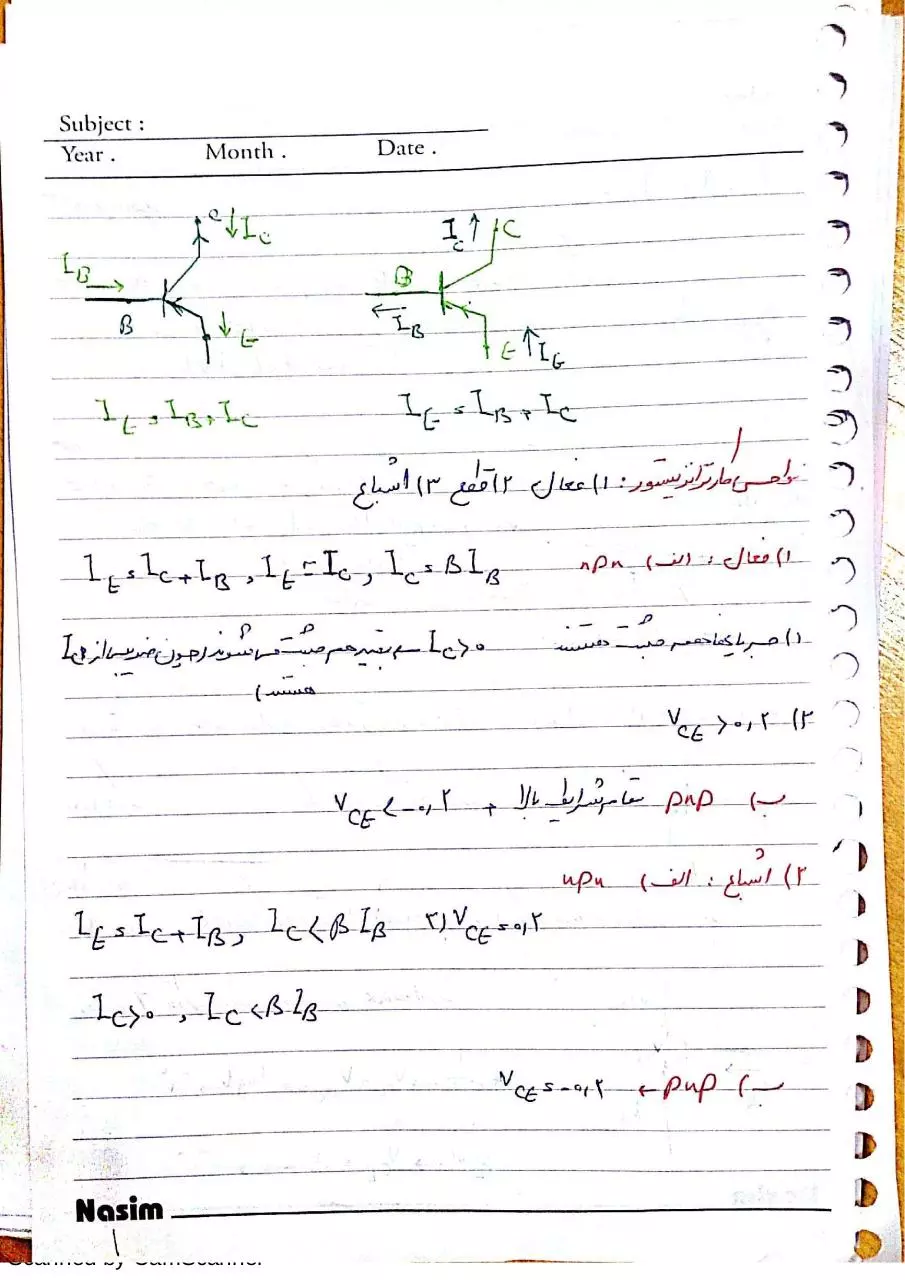 Subject :
Year . Month . Date .
C ↓ I_C
I_B →
B
↓ E
I_C ↑ C
B
← I_B
E ↑ I_E
I_E = I_B + I_C
I_E = I_B + I_C
نواحی کار ترانزیستور : ۱) فعال ۲) قطع ۳) اشباع
۱) فعال : الف) npn I_E = I_C + I_B , I_E ≃ I_C , I_C = β I_B
۱) جریانها همه مثبت هستند I_C > 0 → بقیه هم مثبت می شوند (چون ضریبی از I_B
هستند)
۲) V_CE > ۰,۲
ب) pnp تمام شرایط بالا + V_CE < -۰,۲
۲) اشباع : الف) npn
I_E = I_C + I_B , I_C < β I_B ۲) V_CE = ۰,۲
I_C > 0 , I_C < β I_B
ب) pnp ← V_CE = -۰,۲
Nasim
۱
Scanned by CamScanner